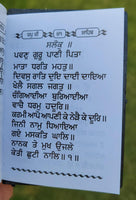 ਸਲੋਕੁ ॥
ਪਵਣੁ ਗੁਰੂ ਪਾਣੀ ਪਿਤਾ
ਮਾਤਾ ਧਰਤਿ ਮਹਤੁ ॥
ਦਿਵਸੁ ਰਾਤਿ ਦੁਇ ਦਾਈ ਦਾਇਆ
ਖੇਲੈ ਸਗਲ ਜਗਤੁ ॥
ਚੰਗਿਆਈਆ ਬੁਰਿਆਈਆ
ਵਾਚੈ ਧਰਮੁ ਹਦੂਰਿ ॥
ਕਰਮੀ ਆਪੋ ਆਪਣੀ ਕੇ ਨੇੜੈ ਕੇ ਦੂਰਿ ॥
ਜਿਨੀ ਨਾਮੁ ਧਿਆਇਆ
ਗਏ ਮਸਕਤਿ ਘਾਲਿ ॥
ਨਾਨਕ ਤੇ ਮੁਖ ਉਜਲੇ
ਕੇਤੀ ਛੁਟੀ ਨਾਲਿ ॥੧॥